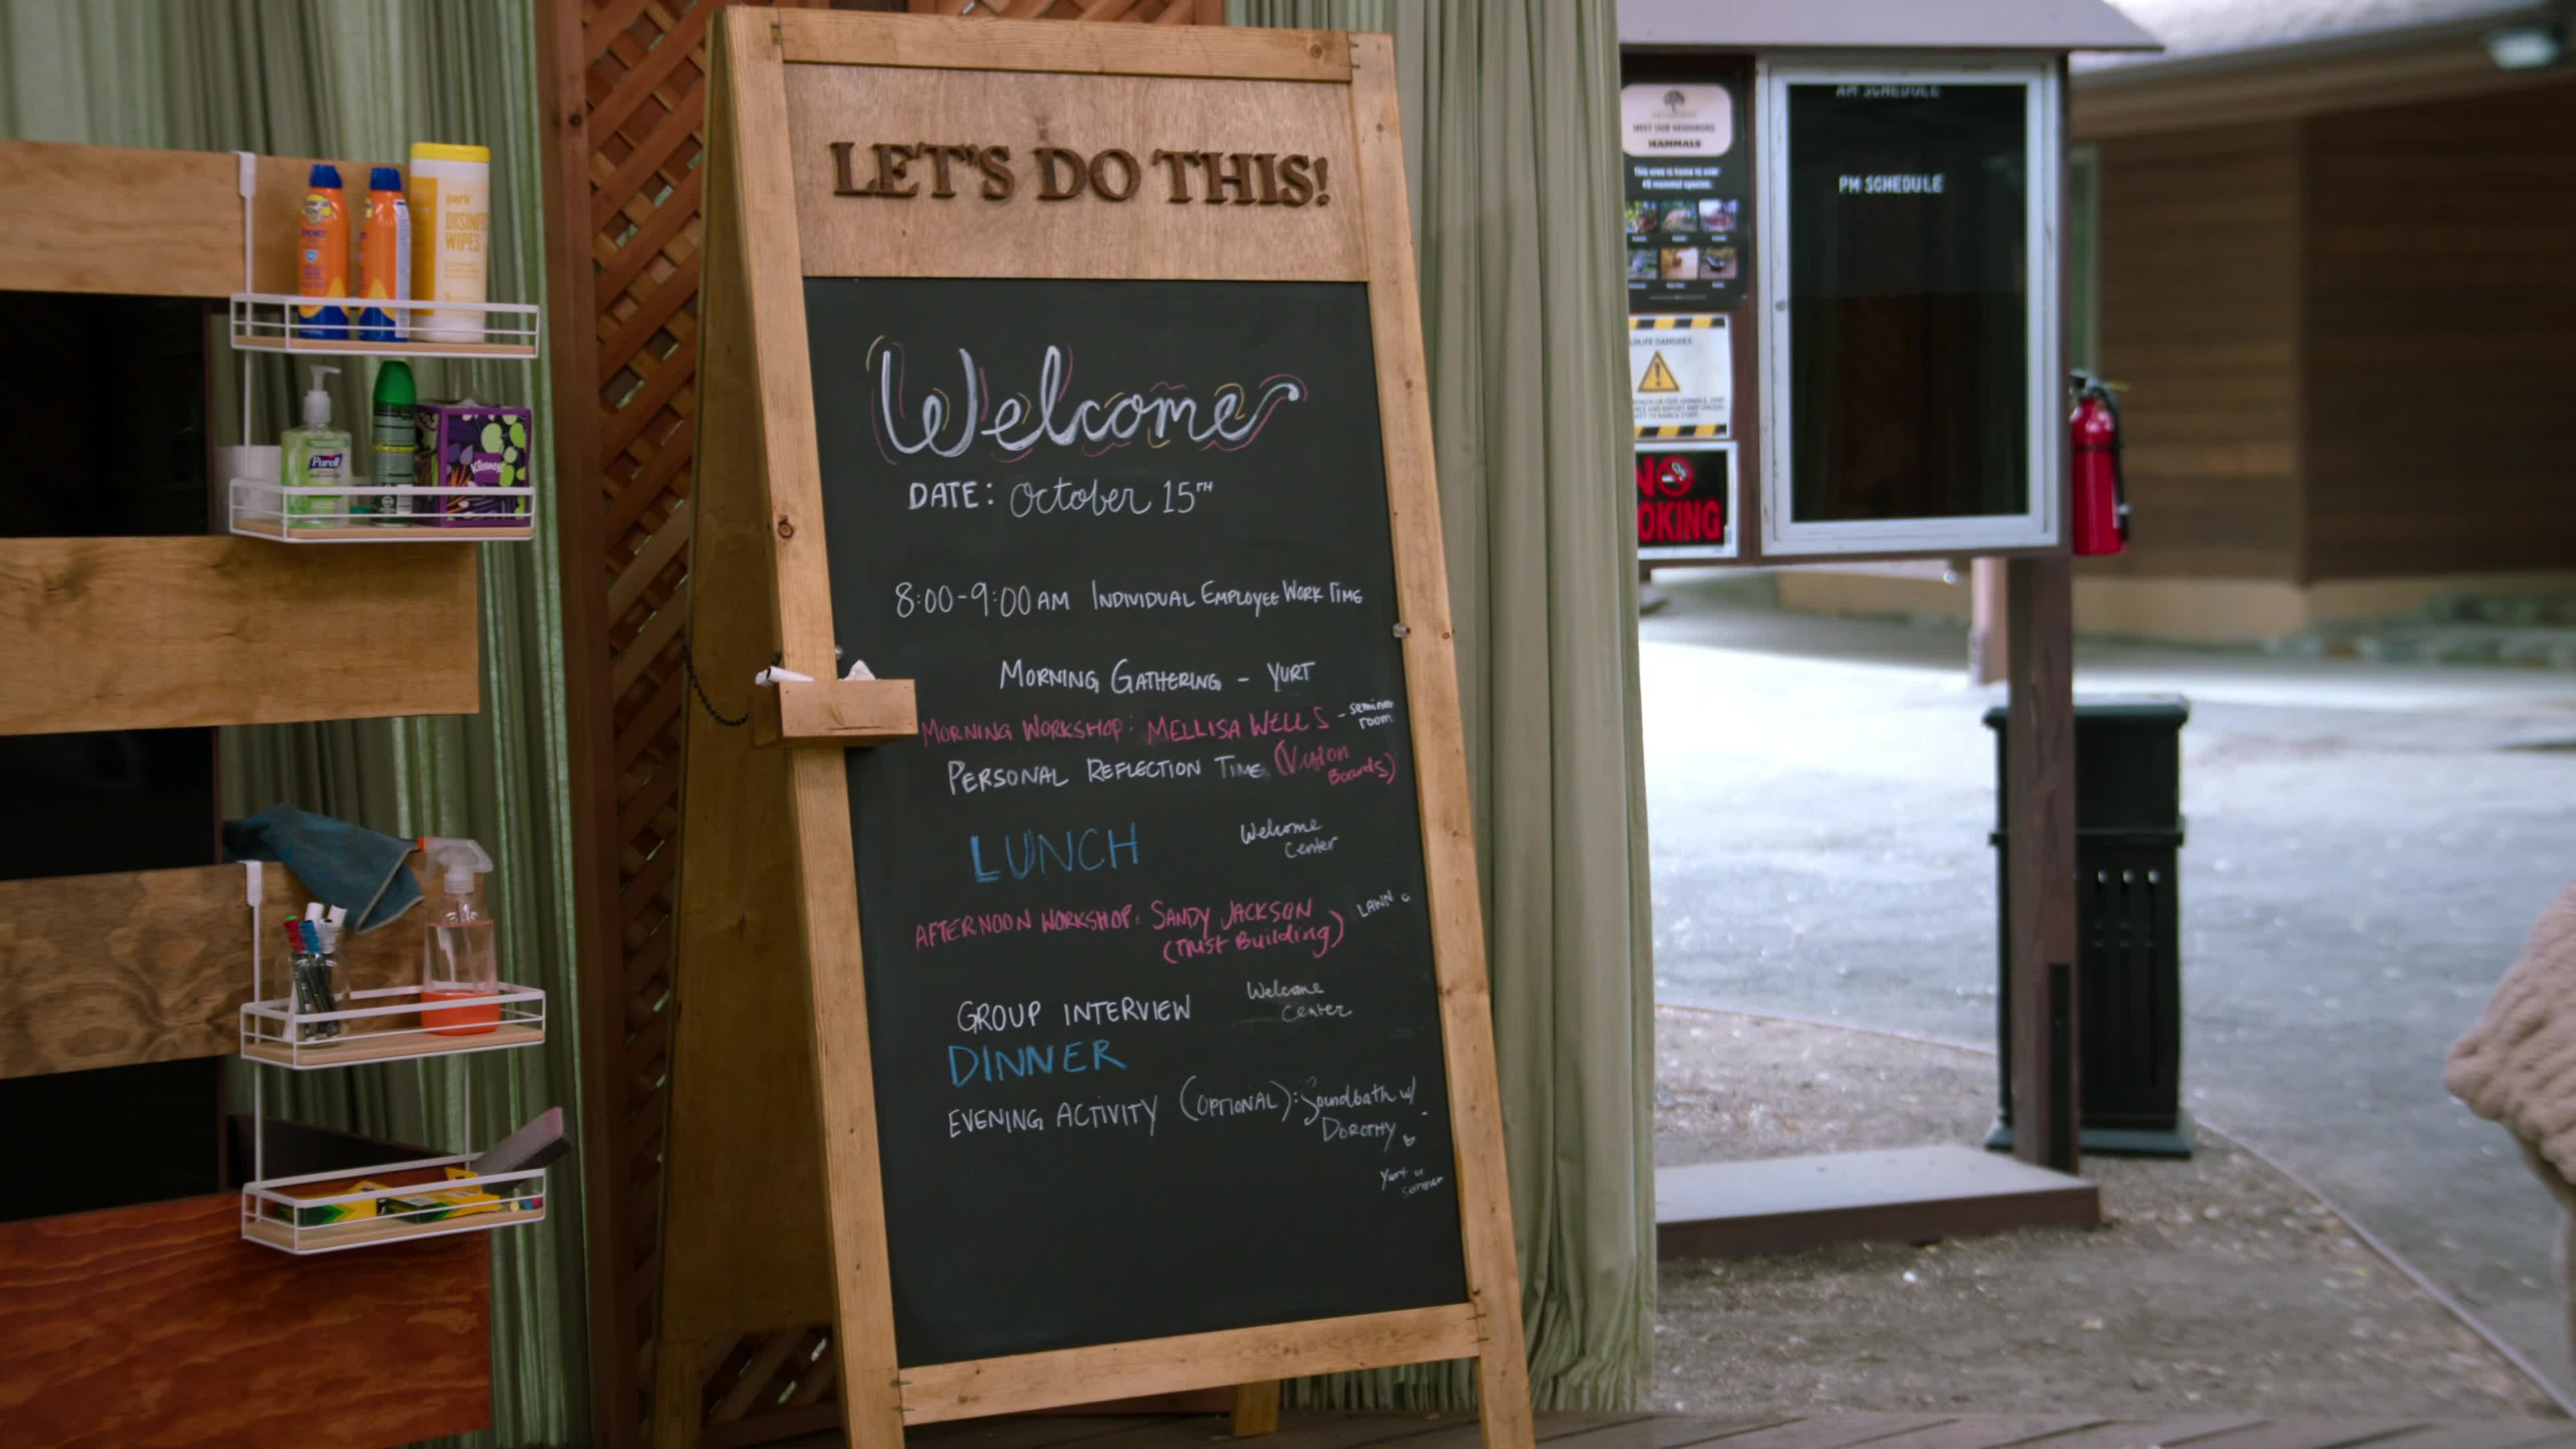 LET'S DO THIS!
Welcome
DATE: October 15TH
8:00-9:00 AM INDIVIDUAL EMPLOYEE WORK TIME
MORNING GATHERING - YURT
MORNING WORKSHOP: MELLISA WELLS - seminar room
PERSONAL REFLECTION TIME (Vision Boards)
LUNCH Welcome Center
AFTERNOON WORKSHOP: SANDY JACKSON LAWN
(Trust Building)
GROUP INTERVIEW Welcome Center
DINNER
EVENING ACTIVITY (OPTIONAL): Soundbath w/
DOROTHY
Yurt or
seminar
perk
DISINF
WIPES
SPORT
Purell
Kleenex
AM SCHEDULE
PM SCHEDULE
MEET OUR NEIGHBORS
MAMMALS
This area is home to over
mammal species.
DLIFE DANGERS
NO
OKING